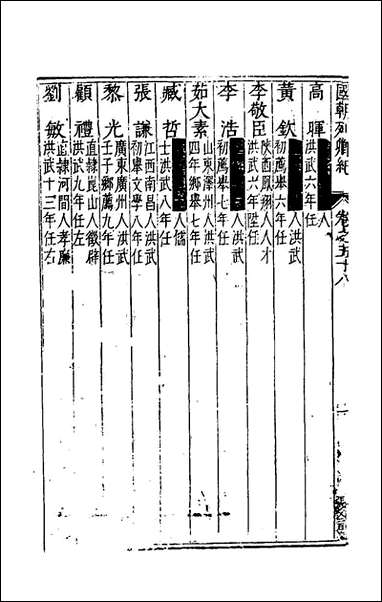 國朝列卿紀 卷之五十八
高暉 人 洪武六年任
黃欽 人洪武 初薦舉六年任
李敬臣 陝西鳳翔人人才 洪武六年陞任
李浩 人洪武 初薦舉七年任
茹大素 山東澤州人洪武 四年鄉舉七年任
臧哲 人儒 士洪武八年任
張謙 江西南昌人洪武 初舉文學八年任
黎光 廣東廣州人洪武 壬子鄉薦九年任
顧禮 直隸崑山人徵辟 洪武九年任左
劉敏 直隸河間人孝廉 洪武十三年任右